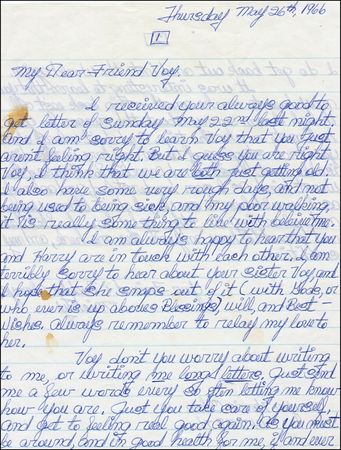 Thursday May 26th, 1966
1
My Dear Friend Voy.
I received your always good to
get letter of Sunday May 22nd last night,
and I am sorry to learn Voy that you just
aren't feeling right. But I guess you are right
Voy, I think that we are both just getting old.
I also have some very rough days, and not
being used to being sick, and my poor walking,
it is really some thing to live with believe me.
I am always happy to hear that you
and Harry are in touch with each other. I am
terribly sorry to hear about your sister Voy and
I hope that she snaps out of it (with Gods, or
who ever is up above Blessings), will, and Best-
Wishes. Always remember to relay my love to
her.
Voy don't you worry about writing
to me, or writing me long letters, just send
me a few words every so often letting me know
how you are. Just you take care of yourself,
and get to feeling real good again. As you must
be around, and in good health for me, if and ever